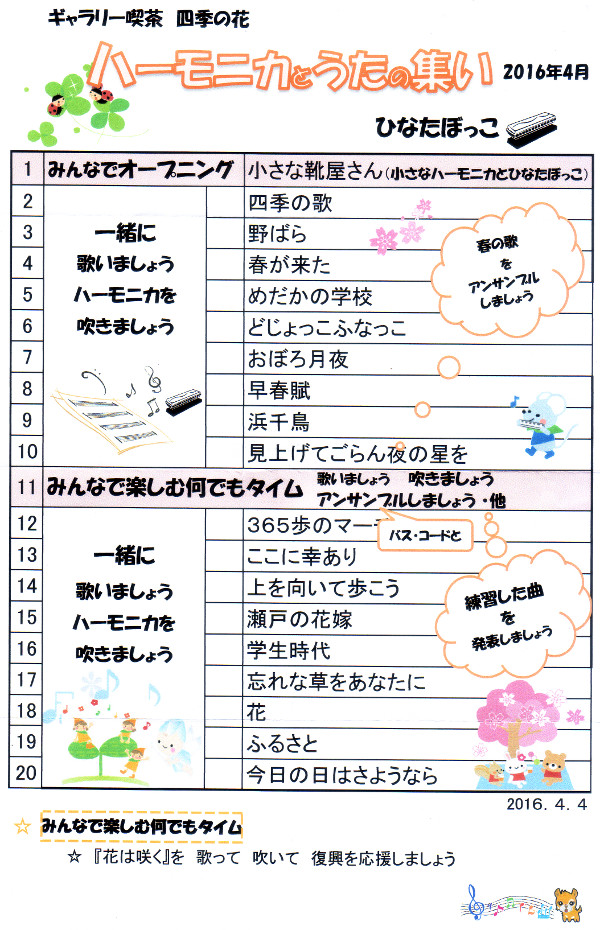 ギャラリー喫茶 四季の花
ハーモニカとうたの集い 2016年4月
ひなたぼっこ
1 みんなでオープニング 小さな靴屋さん(小さなハーモニカとひなたぼっこ)
2 四季の歌
3 野ばら
4 春が来た
5 めだかの学校
6 どじょっこふなっこ
7 おぼろ月夜
8 早春賦
9 浜千鳥
10 見上げてごらん夜の星を
一緒に
歌いましょう
ハーモニカを
吹きましょう
春の歌
を
アンサンブル
しましょう
11 みんなで楽しむ何でもタイム 歌いましょう 吹きましょう
アンサンブルしましょう・他
12 365歩のマー
バス・コードと
13 ここに幸あり
14 上を向いて歩こう
15 瀬戸の花嫁
16 学生時代
17 忘れな草をあなたに
18 花
19 ふるさと
20 今日の日はさようなら
一緒に
歌いましょう
ハーモニカを
吹きましょう
練習した曲
を
発表しましょう
2016. 4. 4
☆ みんなで楽しむ何でもタイム
☆ 『花は咲く』を 歌って 吹いて 復興を応援しましょう